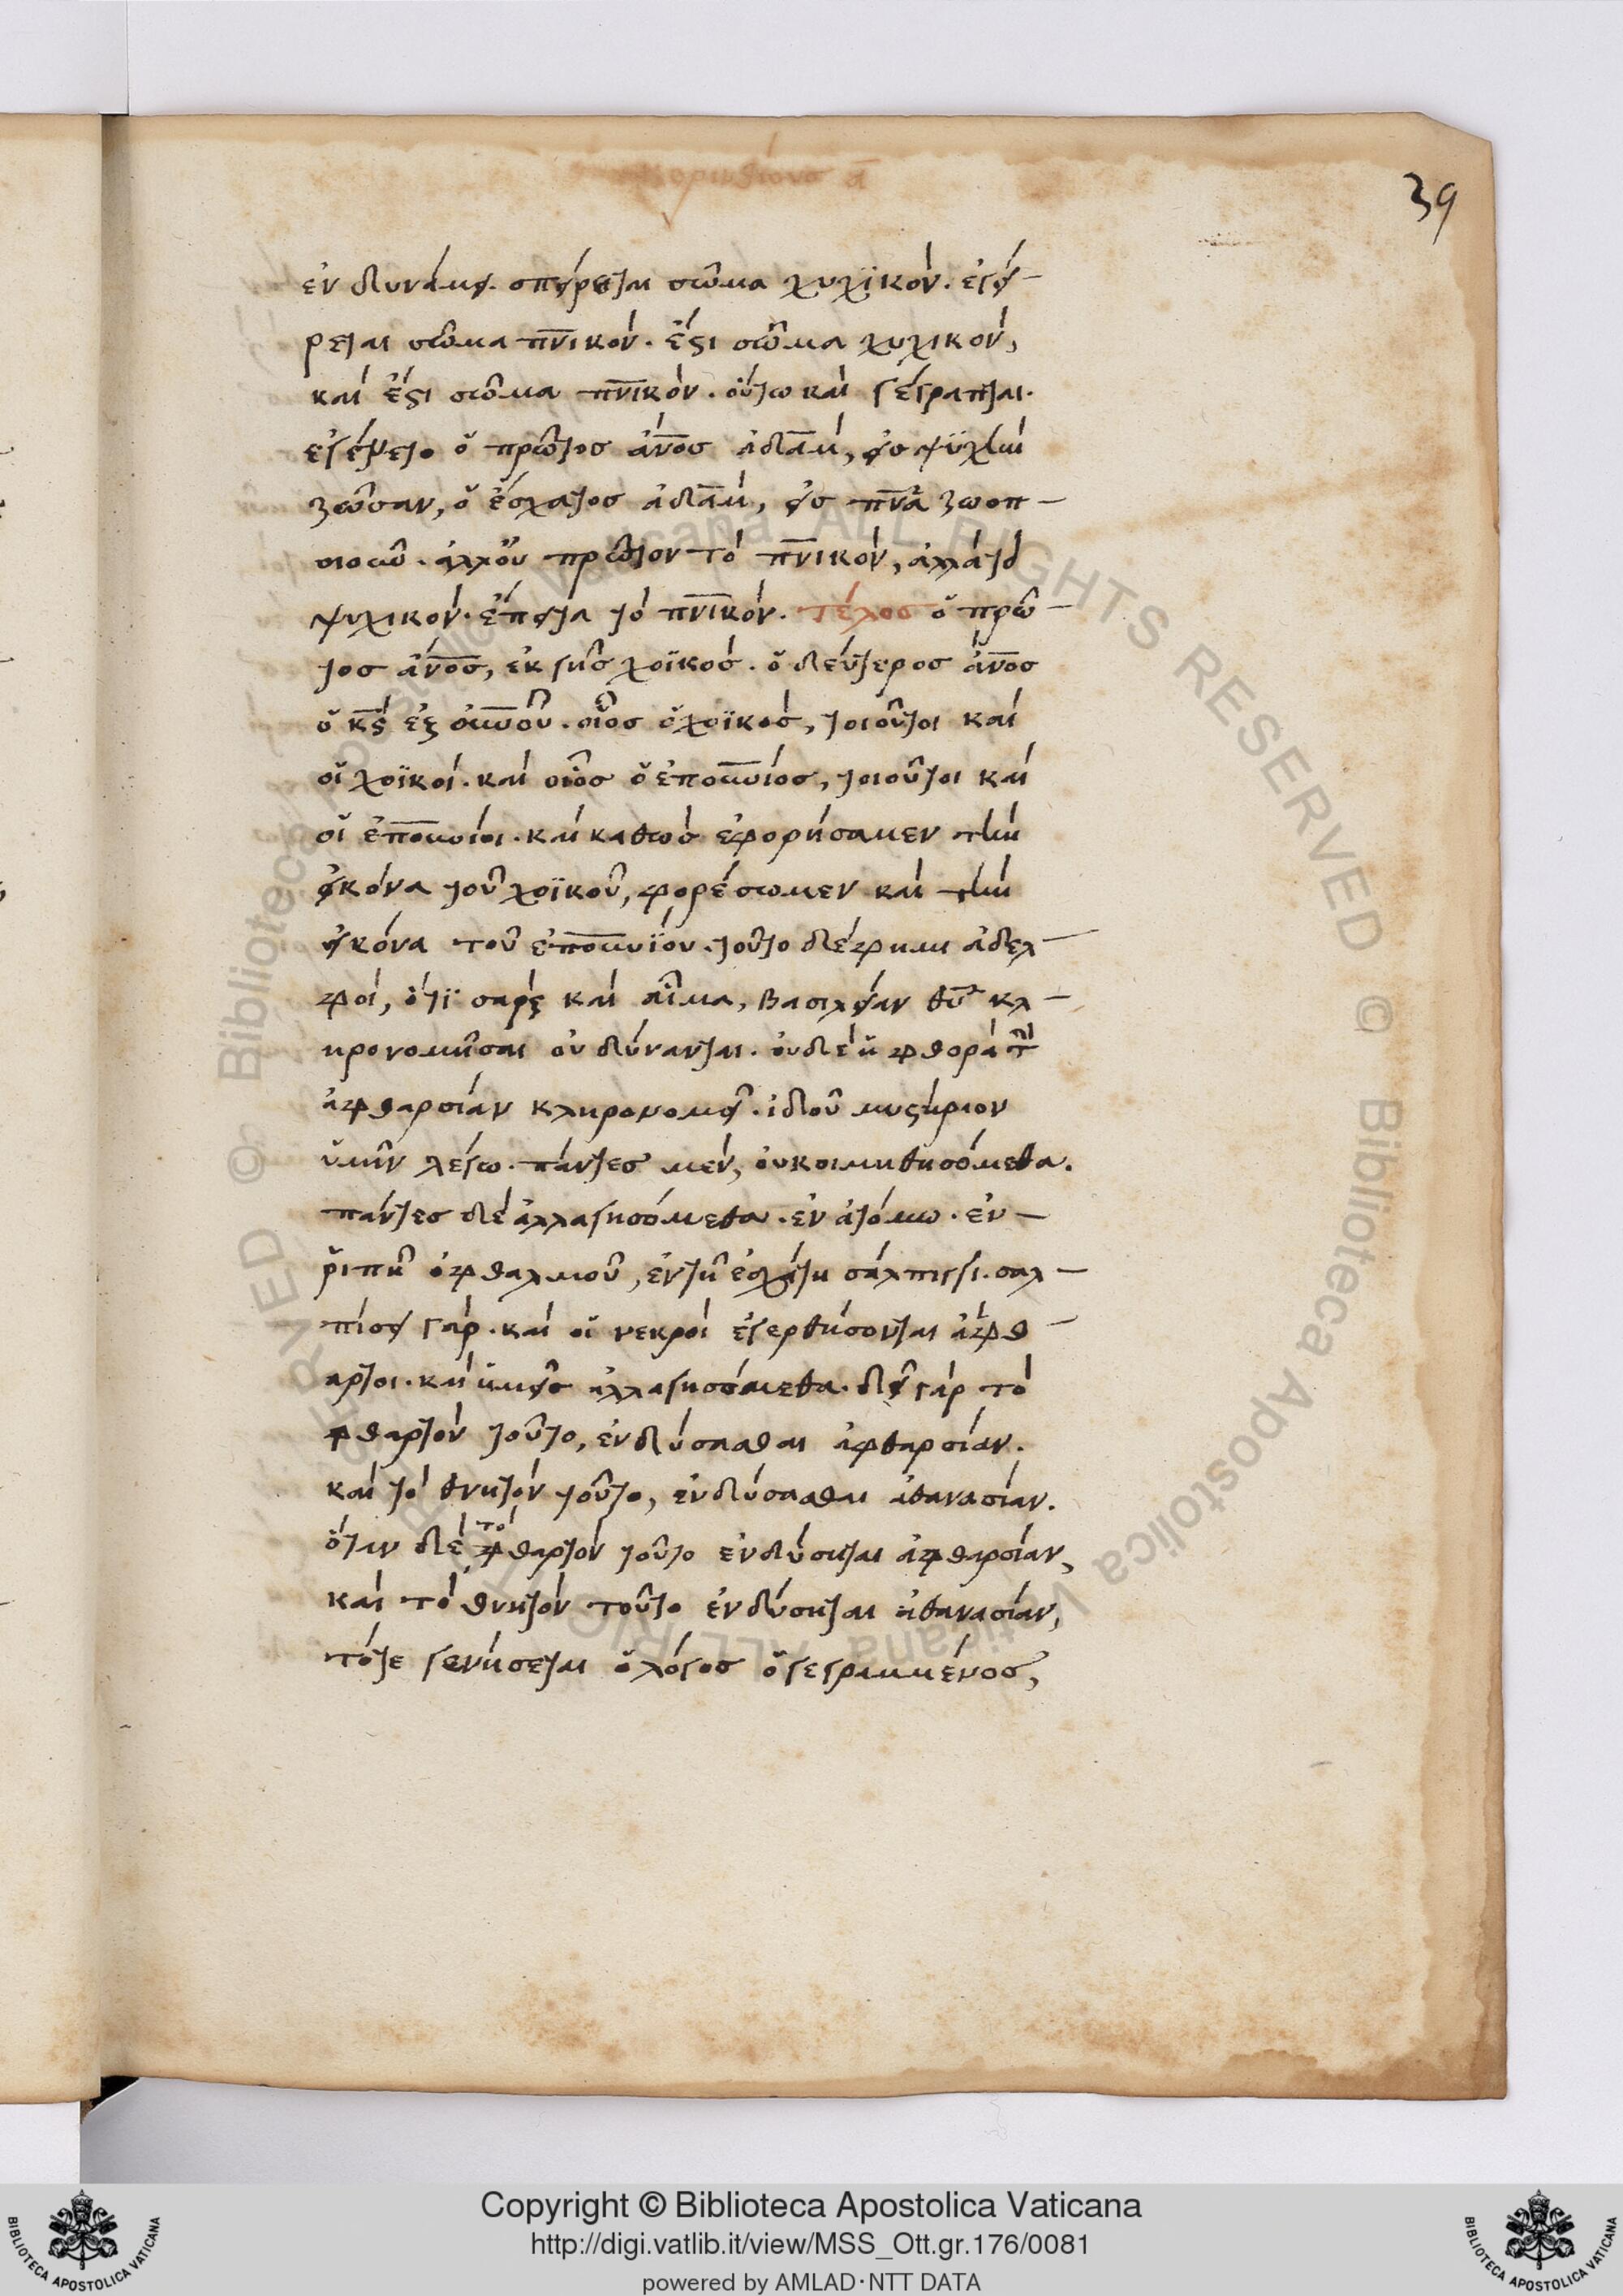 39
ἐν δυνάμει. σπείρεται σῶμα χυχϊκόν. ἐγεί-
ρεται σῶμα πν̅ικόν. ἔστι σῶμα χυχικόν,
καὶ ἔστι σῶμα πν̅ικόν. οὕτω καὶ γέγραπται.
ἐγένετο ὁ πρῶτος ἄν̅ος ἀδάμ, εἰς ψϋχὴν
ζῶσαν, ὁ ἔσχατος ἀδάμ, εἰς πν̅α ζωοπ-
οιοῦν. ἀλλοὐ πρῶτον τὸ πν̅ικόν, ἀλλὰ τὸ
ψυχικόν. ἔπειτα τὸ πν̅ικόν. τέλος ὁ πρῶ-
τος ἄν̅ος, ἐκ γῆς χοϊκός. ὁ δεύτερος ἄν̅ος
ὁ κ̅ς ἐξ οὐν̅οῦ. οἷος ὁ χοϊκός, τοιοῦτοι καὶ
οἱ χοϊκοί. καὶ οἷος ὁ ἐπου̅νιος, τοιοῦτοι καὶ
οἱ ἐπου̅νιοι. καὶ καθὼς ἐφορήσαμεν τὴν
εἰκόνα τοῦ χοϊκοῦ, φορέσωμεν καὶ τὴν
εἰκόνα τοῦ ἐπου̅νίου. τοῦτο δέ φημι ἀδελ-
φοί, ὅτϊ σαρξ καὶ αἷμα, βασιλείαν θ̅υ κλ-
ηρονομῆσαι οὐ δύνανται. οὐδὲ ἡ φθορὰ τὴν
ἀφθαρσίαν κληρονομεῖ. ἰδοῦ μυστήριον
ὑμῖν λέγω. πάντες μέν, οὐ κοιμηθησόμεθα.
πάντες δὲ ἀλλαγησόμεθα. ἐν ἀτόμω. ἐν-
ῥιπῆ ὀφθαλμοῦ, ἐν τῆ ἐσχάτη σάλπιγγι. σαλ-
πίσει γάρ. καὶ οἱ νεκροὶ ἐγερθήσονται ἄφθ-
αρτοι. καὶ ἡμεῖς ἀλλαγησόμεθα. δεῖ γὰρ τὸ
φθαρτὸν τοῦτο, ἐνδύσασθαι ἀφθαρσίαν.
καὶ τὸ θνητὸν τοῦτο, ἐνδύσασθαι ἀθανασίαν.
ὅταν δὲ τὸ φθαρτὸν τοῦτο ἐνδύσηται ἀφθαρσίαν,
καὶ τὸ θνητὸν τοῦτο ἐνδύσηται ἀθανασίαν,
τότε γενήσεται ὁ λόγος ὁ γεγραμμένος,
Copyright © Biblioteca Apostolica Vaticana
http://digi.vatlib.it/view/MSS_Ott.gr.176/0081
powered by AMLAD·NTT DATA